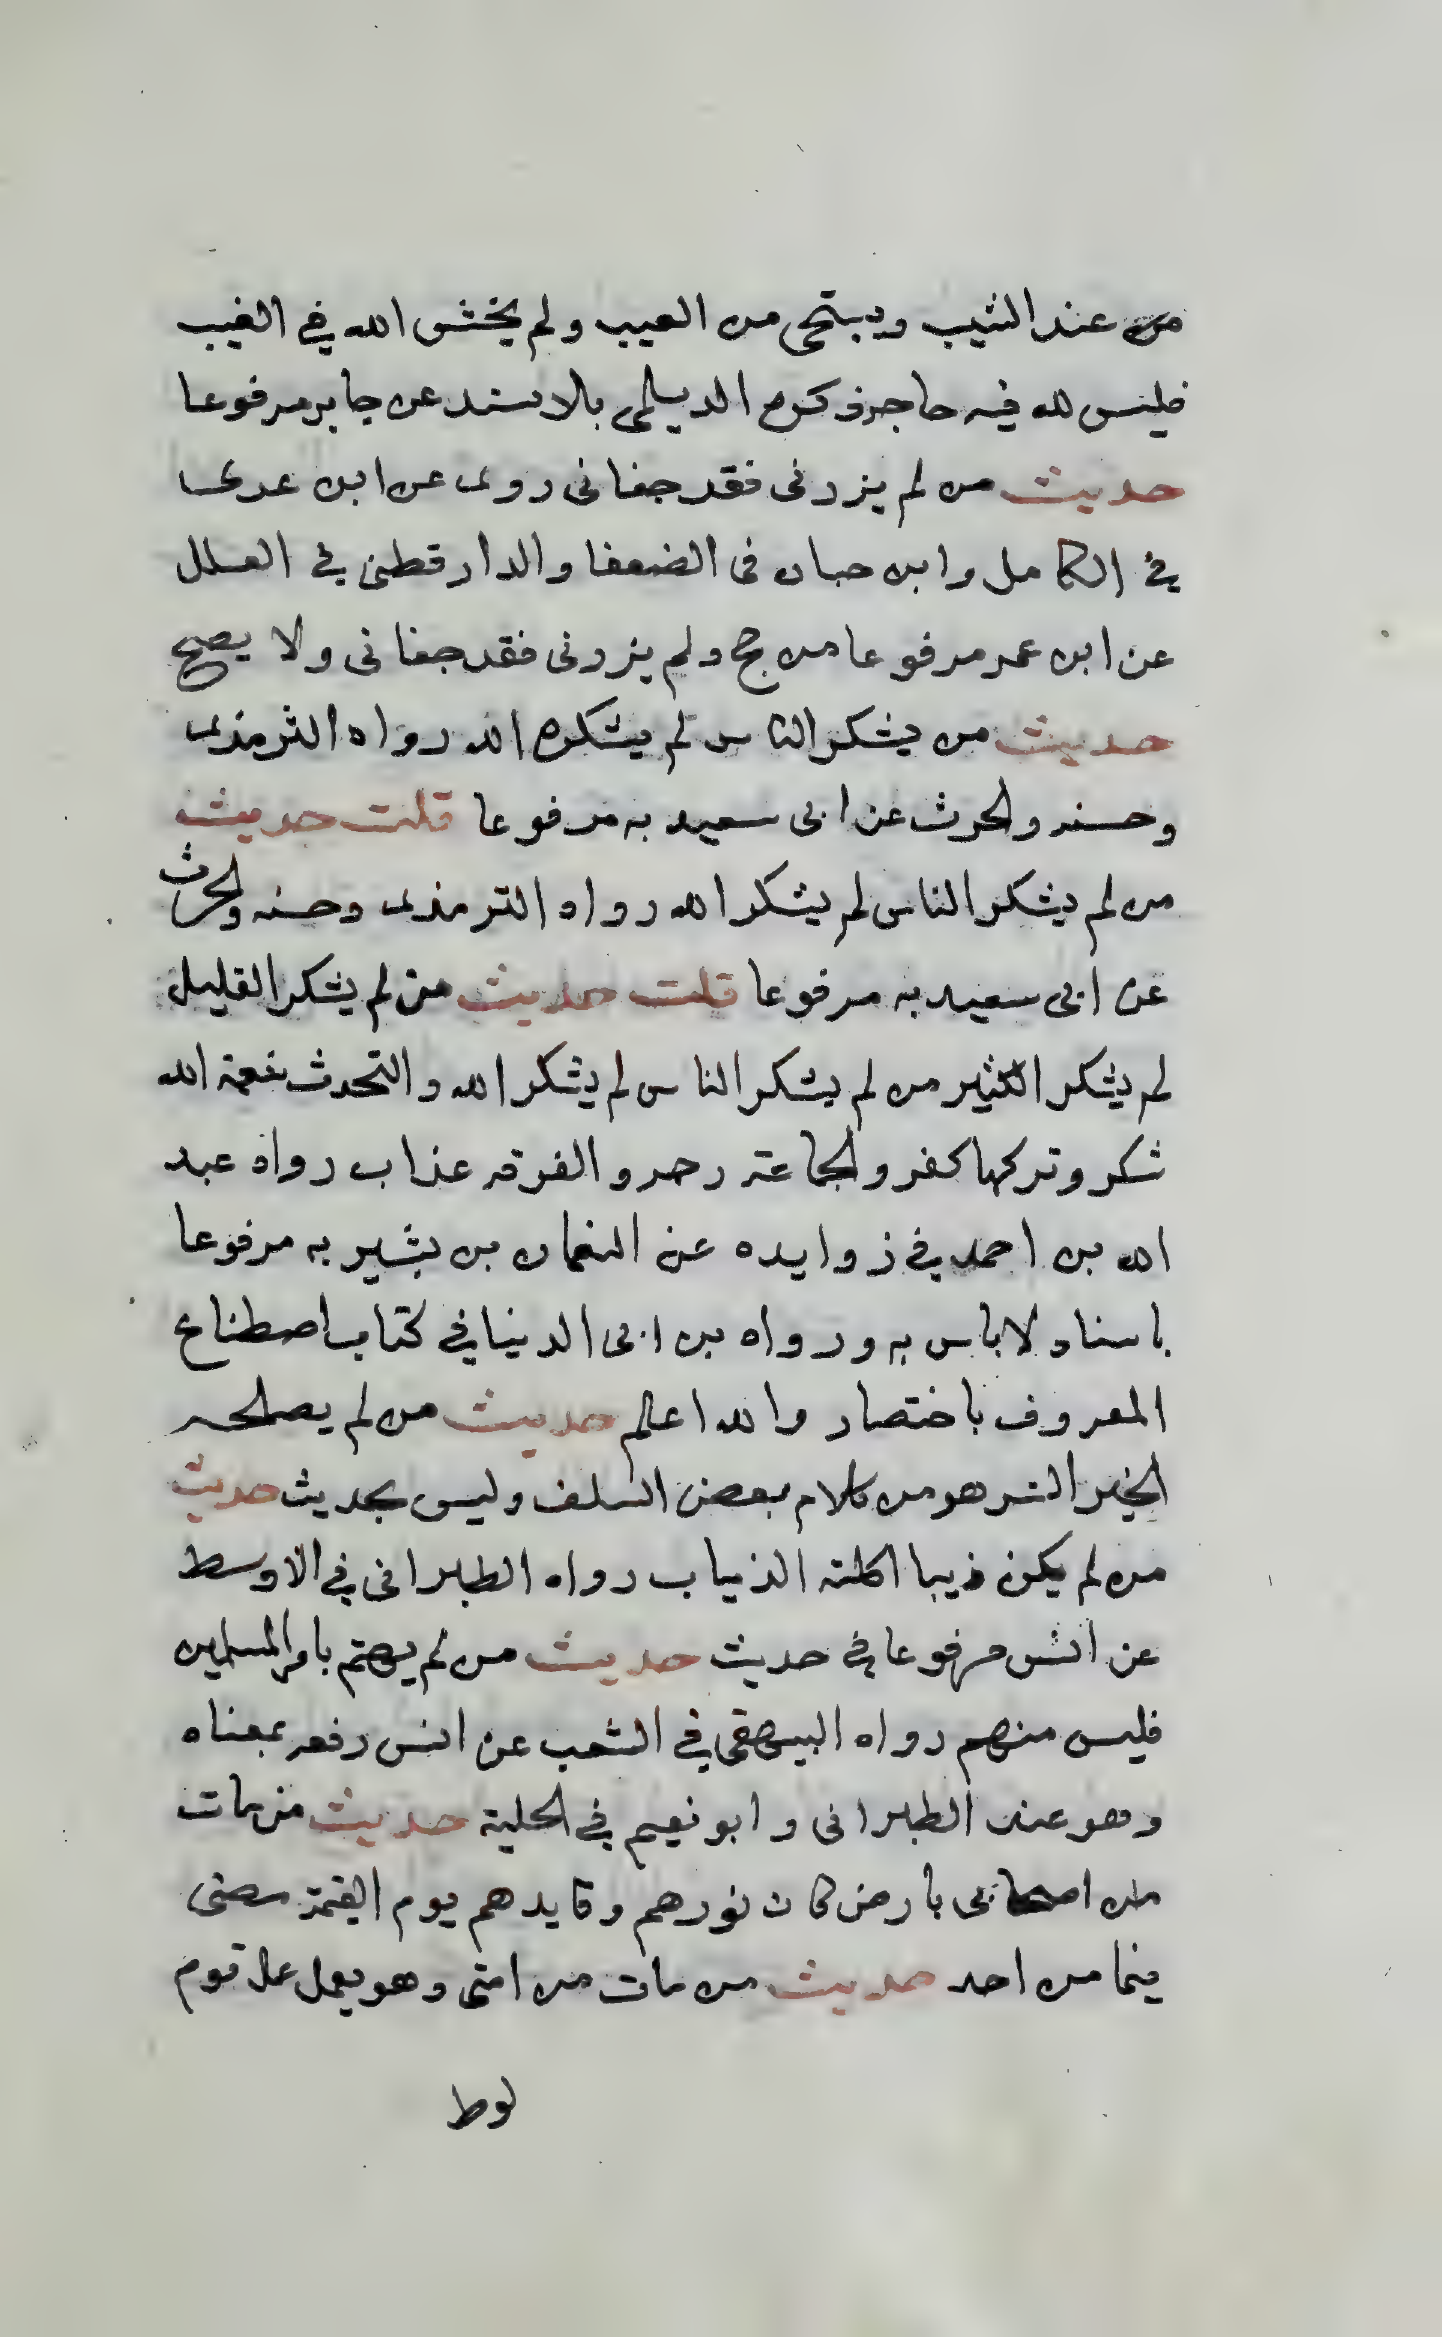 من عند الشيب ويستحى من العيب ولم يخش الله في الغيب
فليس لله فيه حاجه ذكره الديلمى بلا سند عن جابر مرفوعا
حديث من لم يزرنى فقد جفانى روى عن ابن عدى
في الكامل وابن حبان فى الضعفا والدارقطنى في العلل
عن ابن عمر مرفوعا من حج ولم يزرنى فقد جفانى ولا يصح
حديث من يشكر الناس لم يشكره الله رواه الترمذى
وحسنه والحرث عن ابى سعيد به مرفوعا قلت حديث
من لم يشكر الناس لم يشكر الله رواه الترمذى وحسنه والحرث
عن ابى سعيد به مرفوعا قلت حديث من لم يشكر القليل
لم يشكر الكثير من لم يشكر الناس لم يشكر الله والتحدث بنعمة الله
شكر وتركها كفر والجماعة رحمه والفرقه عذاب رواه عبد
الله بن احمد في زوايده عن النعمان بن بشير به مرفوعا
باسناد لاباس به ورواه بن ابى الدنيا في كتاب اصطناع
المعروف باختصار والله اعلم حديث من لم يصلحه
الخير الشر هو من كلام بعض السلف وليس بحديث حديث
من لم يكن ذيبا اكلته الذياب رواه الطبرانى في الاوسط
عن انس مرفوعا في حديث حديث من لم يهتم بامر المسلمين
فليس منهم رواه البيهقى في الشعب عن انس رفعه بمعناه
وهو عند الطبرانى وابو نعيم في الحلية حديث من مات
من اصحابى بارض كان نورهم وقايدهم يوم القيمة مضى
فيما من احد حديث من مات من امتى وهو يعمل عمل قوم
لوط